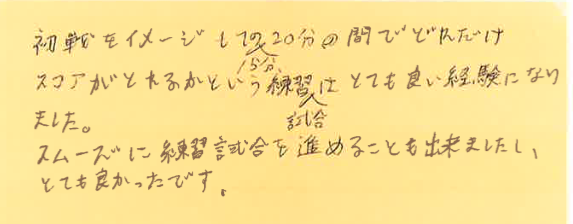 初戦をイメージしての20分の間でどれだけ
15分
スコアがとれるかという練習はとても良い経験になり
試合
ました。
スムーズに練習試合を進めることも出来ましたし、
とても良かったです。